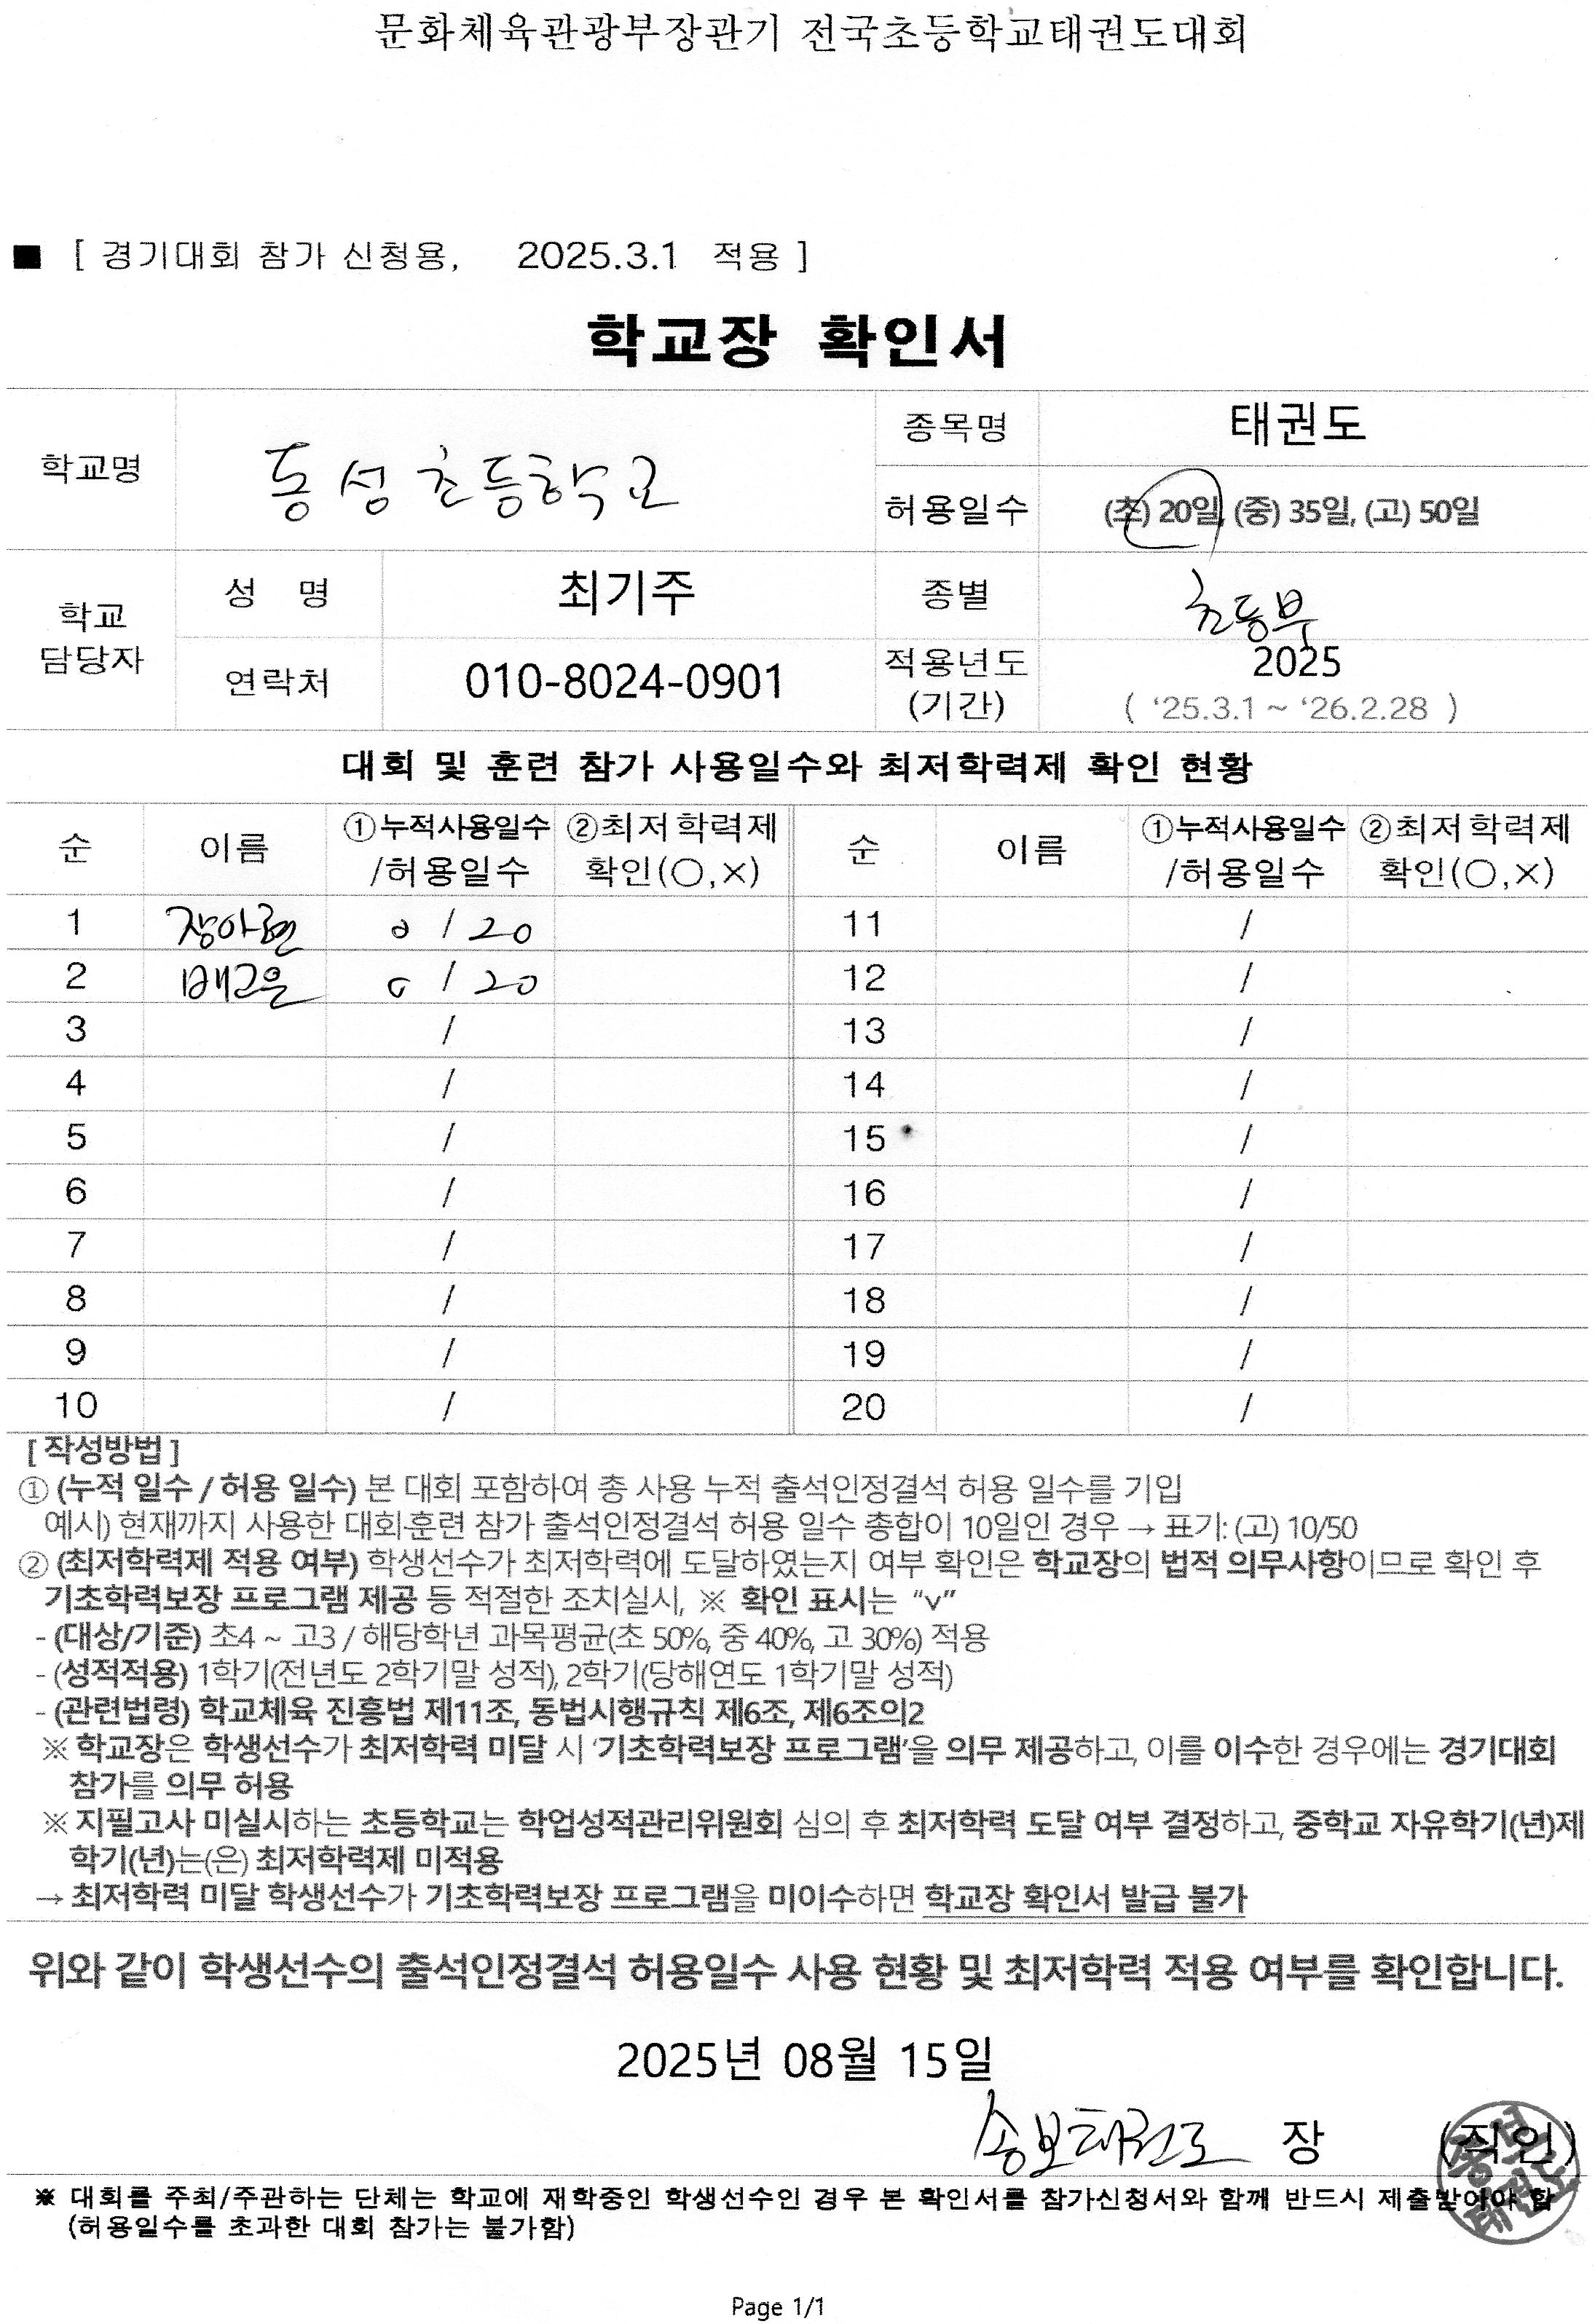 문화체육관광부장관기 전국초등학교태권도대회
■ [ 경기대회 참가 신청용, 2025.3.1 적용 ]
학교장 확인서
학교명 동성초등학교 종목명 태권도
허용일수 (초) 20일, (중) 35일, (고) 50일
학교 담당자 성 명 최기주 종별 초등부
연락처 010-8024-0901 적용년도 (기간) 2025
( ‘25.3.1 ~ ‘26.2.28 )
대회 및 훈련 참가 사용일수와 최저학력제 확인 현황
순 이름 ①누적사용일수 /허용일수 ②최저학력제 확인(○,×) 순 이름 ①누적사용일수 /허용일수 ②최저학력제 확인(○,×)
1 장아현 0 / 20 11 /
2 배고은 0 / 20 12 /
3 / 13 /
4 / 14 /
5 / 15 /
6 / 16 /
7 / 17 /
8 / 18 /
9 / 19 /
10 / 20 /
[ 작성방법 ]
① (누적 일수 / 허용 일수) 본 대회 포함하여 총 사용 누적 출석인정결석 허용 일수를 기입
예시) 현재까지 사용한 대회·훈련 참가 출석인정결석 허용 일수 총합이 10일인 경우 → 표기: (고) 10/50
② (최저학력제 적용 여부) 학생선수가 최저학력에 도달하였는지 여부 확인은 학교장의 법적 의무사항이므로 확인 후
기초학력보장 프로그램 제공 등 적절한 조치실시, ※ 확인 표시는 “v”
- (대상/기준) 초4 ~ 고3 / 해당학년 과목평균(초 50%, 중 40%, 고 30%) 적용
- (성적적용) 1학기(전년도 2학기말 성적), 2학기(당해연도 1학기말 성적)
- (관련법령) 학교체육 진흥법 제11조, 동법시행규칙 제6조, 제6조의2
※ 학교장은 학생선수가 최저학력 미달 시 ‘기초학력보장 프로그램’을 의무 제공하고, 이를 이수한 경우에는 경기대회
참가를 의무 허용
※ 지필고사 미실시하는 초등학교는 학업성적관리위원회 심의 후 최저학력 도달 여부 결정하고, 중학교 자유학기(년)제
학기(년)는(은) 최저학력제 미적용
→ 최저학력 미달 학생선수가 기초학력보장 프로그램을 미이수하면 학교장 확인서 발급 불가
위와 같이 학생선수의 출석인정결석 허용일수 사용 현황 및 최저학력 적용 여부를 확인합니다.
2025년 08월 15일
송보태권도 장 (직인)
송보
태권도
※ 대회를 주최/주관하는 단체는 학교에 재학중인 학생선수인 경우 본 확인서를 참가신청서와 함께 반드시 제출받아야 함
(허용일수를 초과한 대회 참가는 불가함)
Page 1/1